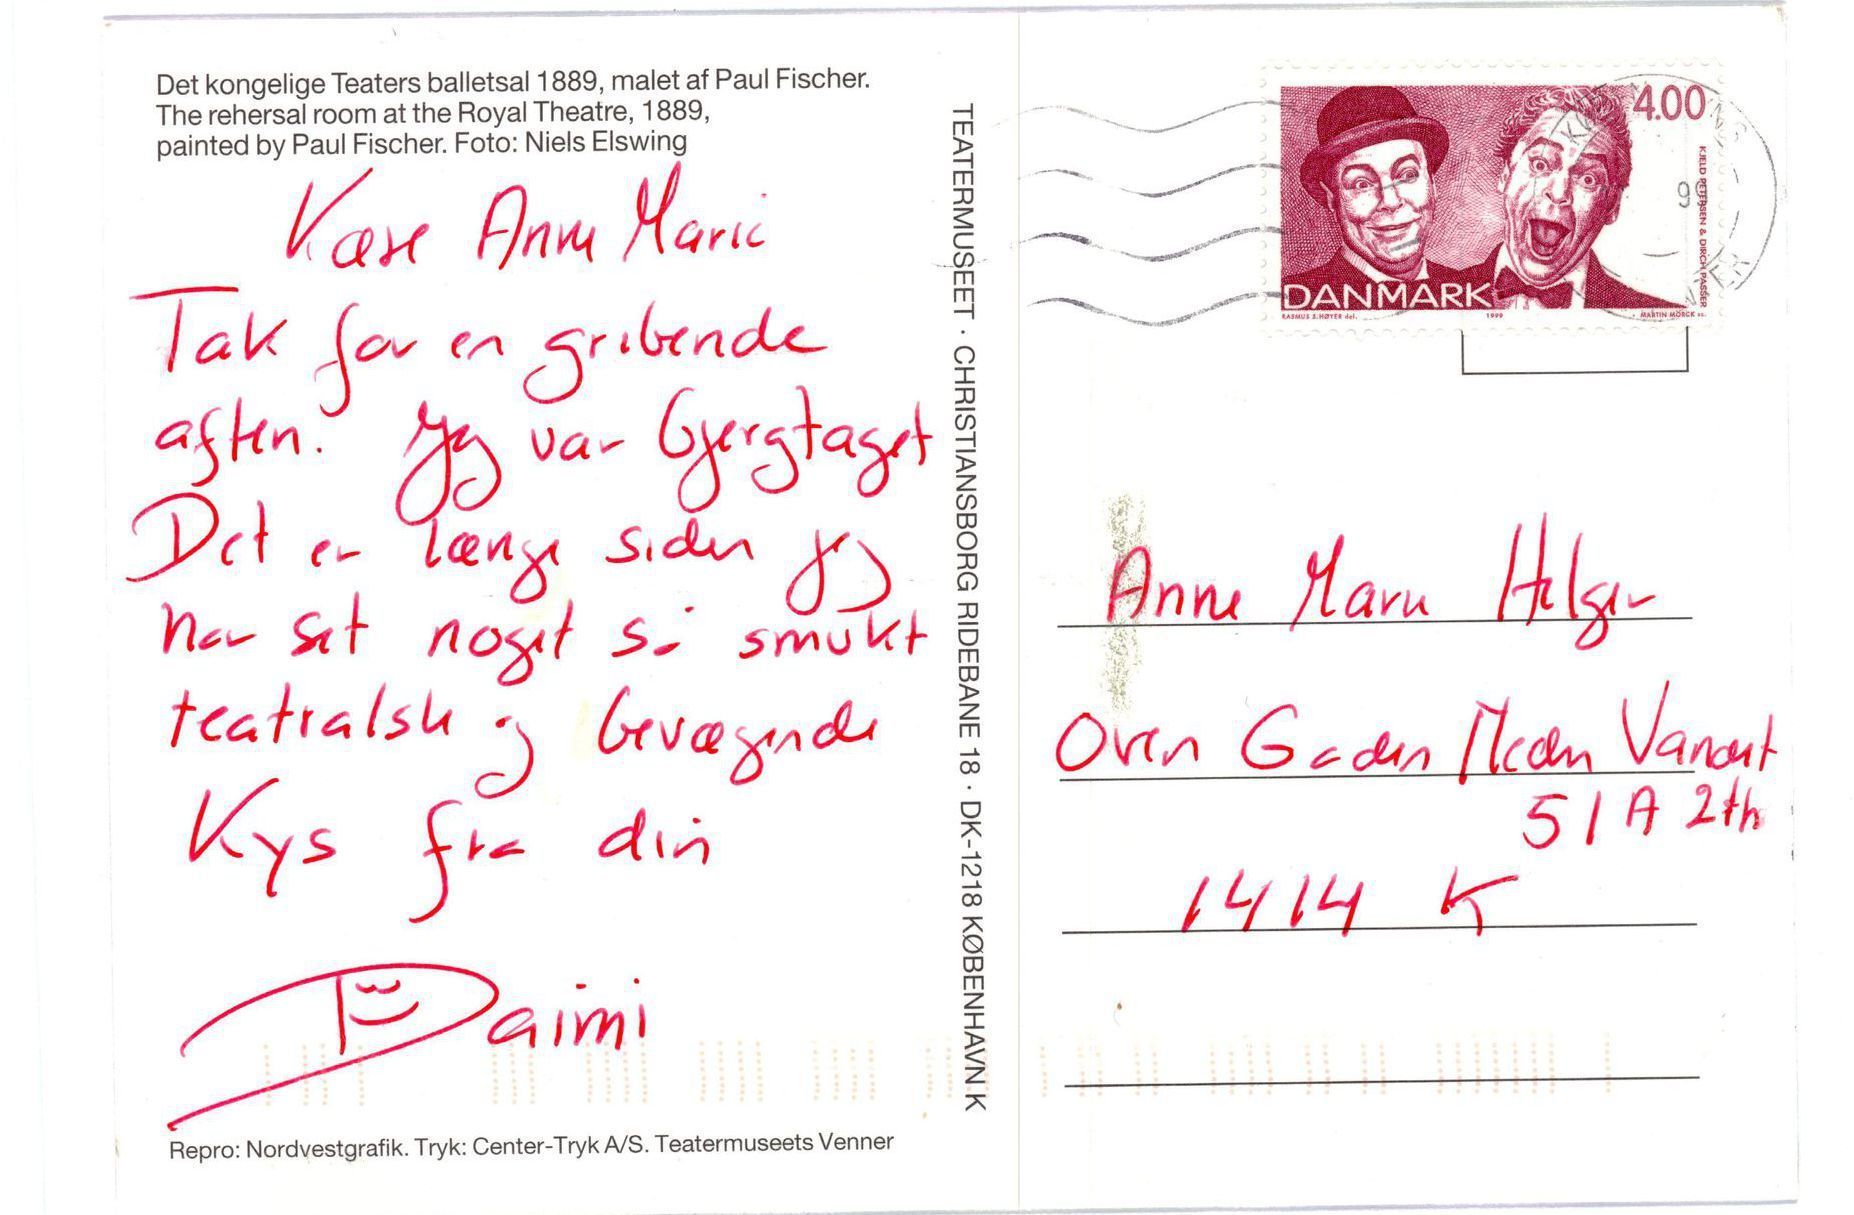 Det kongelige Teaters balletsal 1889, malet af Paul Fischer.
The rehersal room at the Royal Theatre, 1889,
painted by Paul Fischer. Foto: Niels Elswing
Kære Anne Marie
Tak for en gribende
aften. Jeg var bjergtaget
Det er længe siden jeg
har set noget så smukt
teatralsk og bevægende
Kys fra din
Daimi
Repro: Nordvestgrafik. Tryk: Center-Tryk A/S. Teatermuseets Venner
TEATERMUSEET · CHRISTIANSBORG RIDEBANE 18 · DK-1218 KØBENHAVN K
4.00
KJELD PETERSEN & DIRCH PASSER
DANMARK
RASMUS S. HØYER del. 1999 MARTIN MÖRCK sc.
Anne Marie Helger
Oven Gaden Neden Vandet
51 A 2th
1414 K